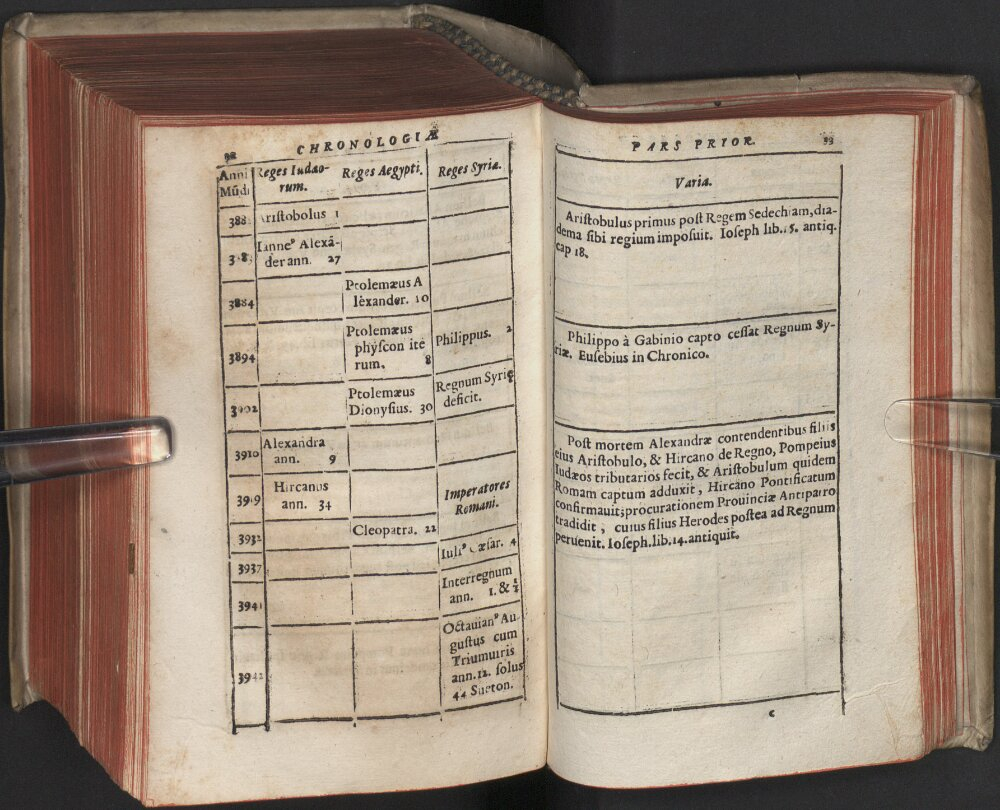 CHRONOLOGIÆ
Anni Reges Iudæo- Reges Aegypti. Reges Syriæ.
Mũdi rum.
Aristobolus 1
Iannes Alexã-
der ann. 27
3884 Ptolemæus A
lexander. 10
3894 Ptolemæus Philippus. 2
physcon ite
rum. 8
3902 Ptolemæus Regnum Syrię
Dionysius. 30 deficit.
3910 Alexandra
ann. 9
3919 Hircanus Imperatores
ann. 34 Romani.
3932 Cleopatra. 22
3937 Iuliꝰ Cæsar. 4
3941 Interregnum
ann. 1. & ½
3942 Octauianꝰ Au
gustus cum
Triumuiris
ann. 12. solus
44 Sueton.
PARS PRIOR. 53
Varia.
Aristobulus primus post Regem Sedechiam, dia-
dema sibi regium imposuit. Ioseph lib. 15. antiq.
cap 18.
Philippo à Gabinio capto cessat Regnum Sy-
riæ. Eusebius in Chronico.
Post mortem Alexandræ contendentibus filiis
eius Aristobulo, & Hircano de Regno, Pompeius
Iudæos tributarios fecit, & Aristobulum quidem
Romam captum adduxit, Hircano Pontificatum
confirmauit; procurationem Prouinciæ Antiparro
tradidit, cuius filius Herodes postea ad Regnum
peruenit. Ioseph. lib. 14. antiquit.
c